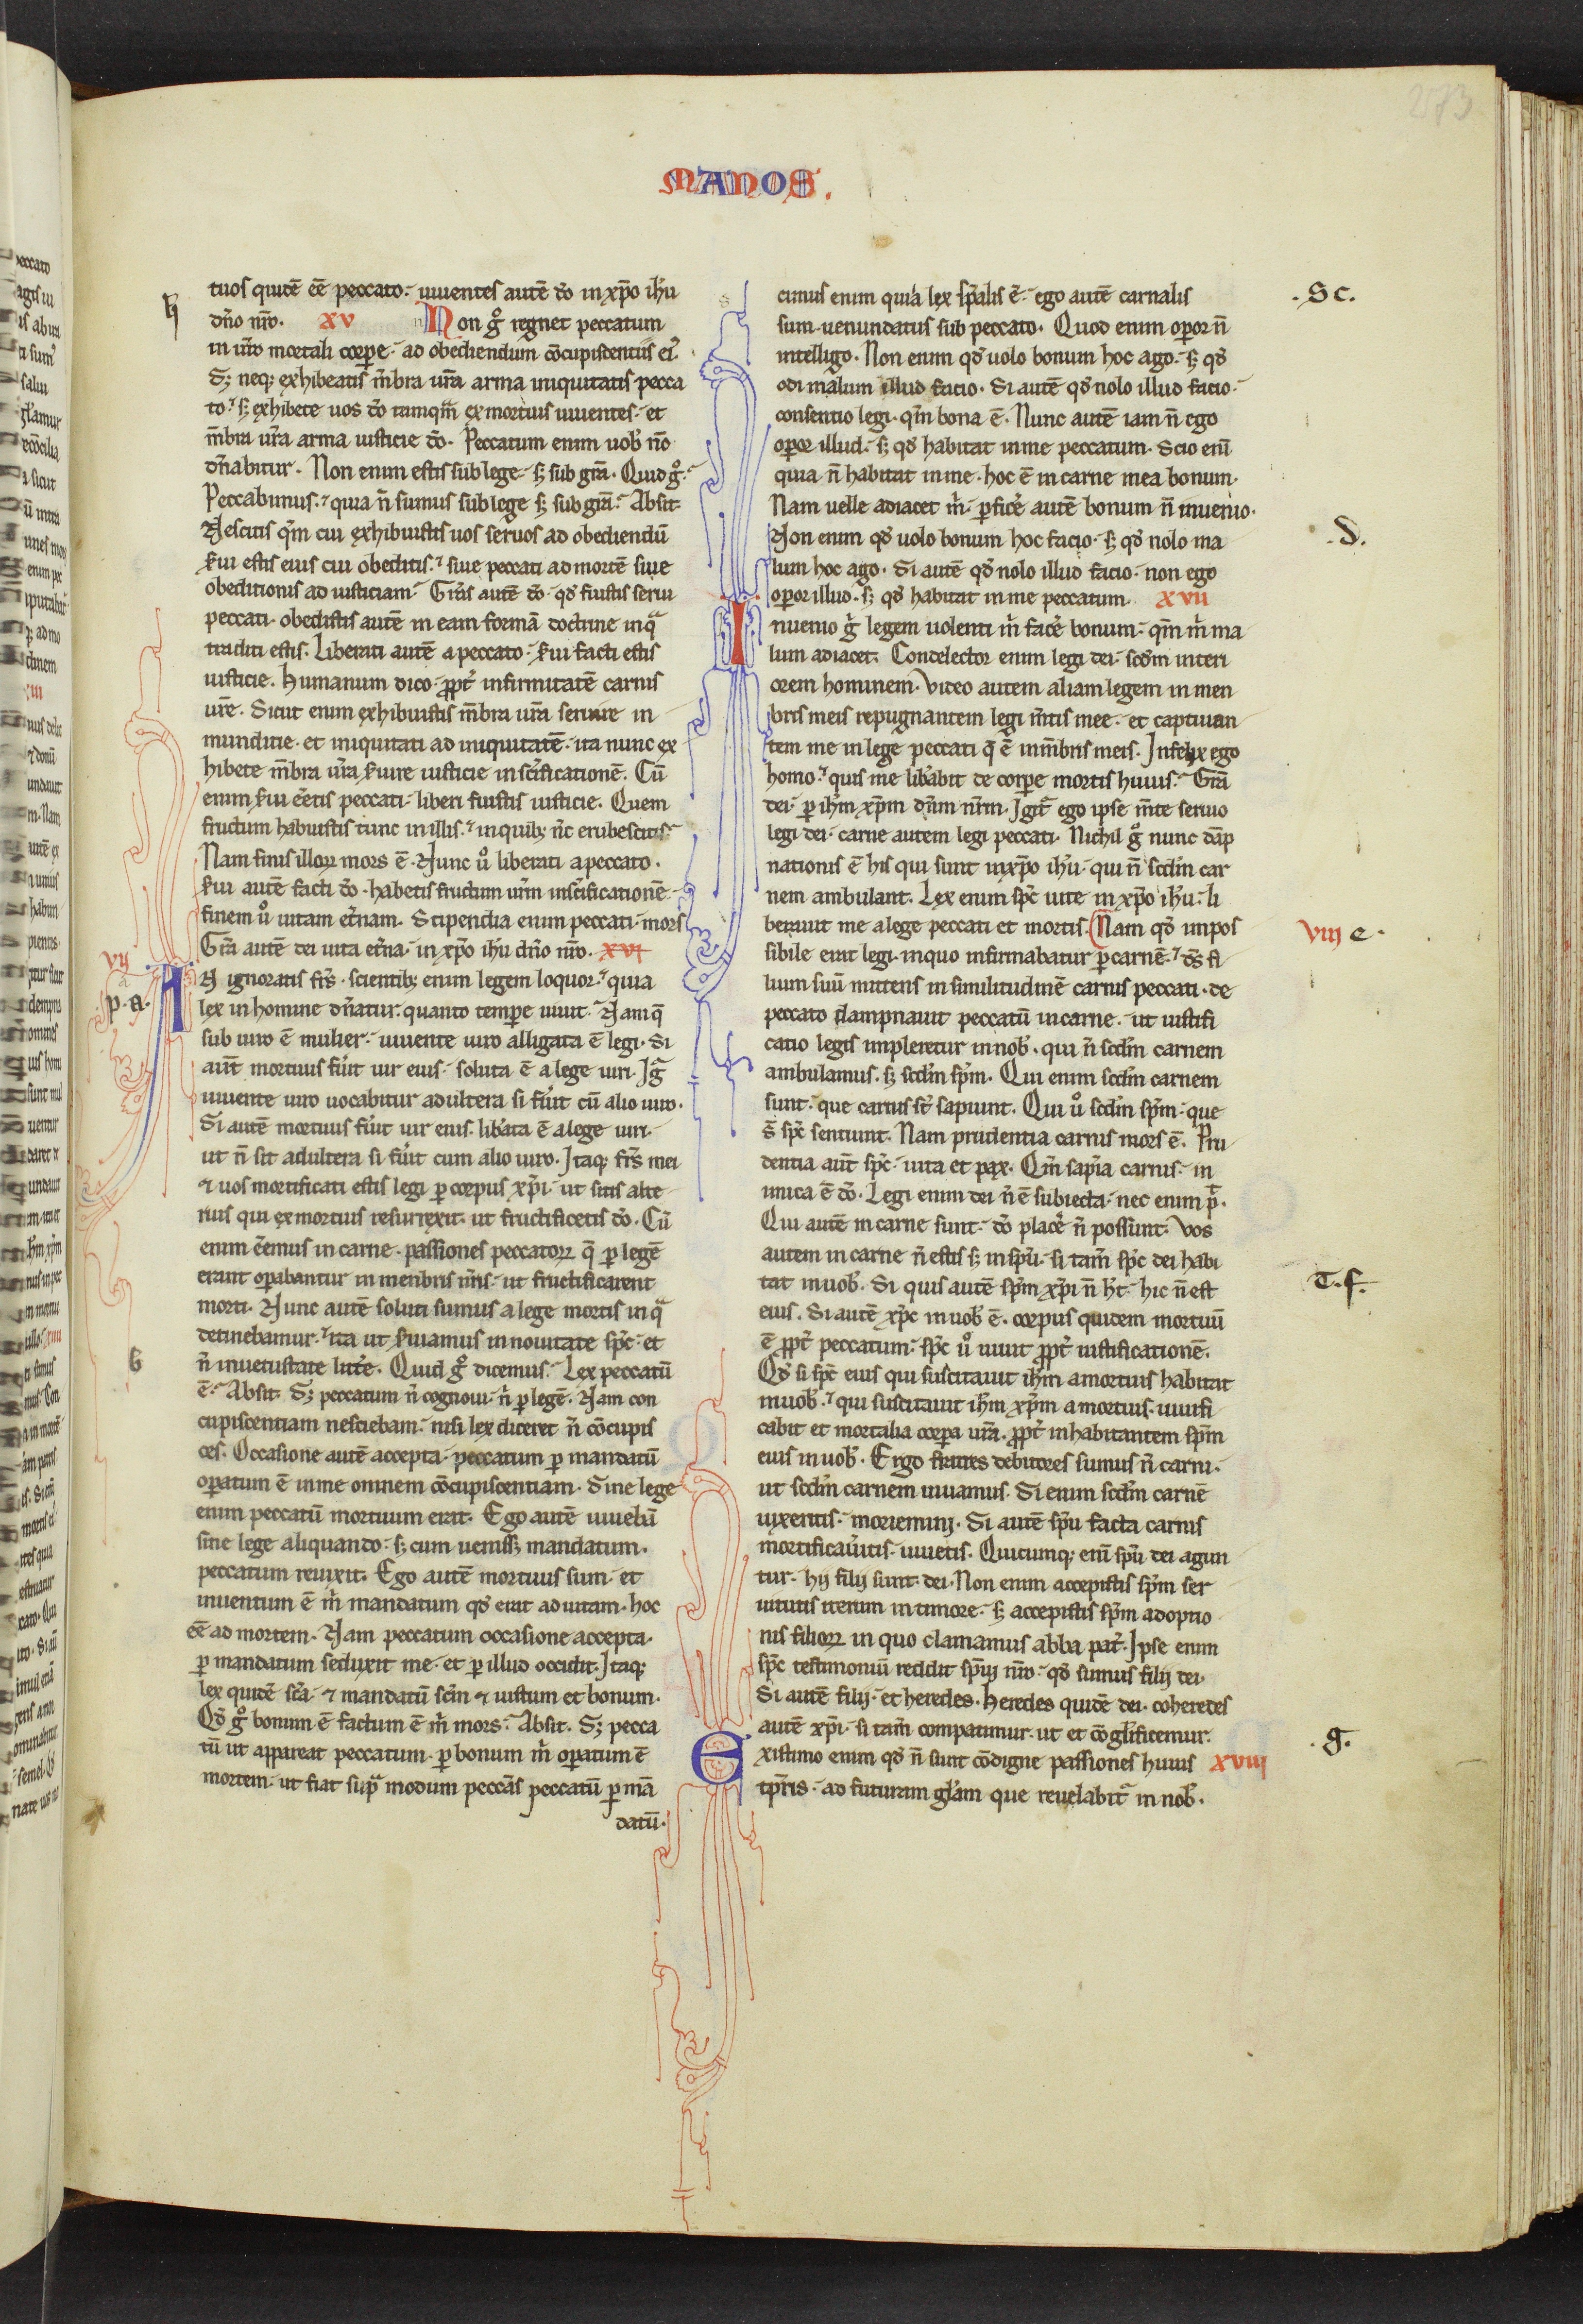 273
MANOS.
tuos quidē eē peccato. uiuentes autē dō in xp̄o ih'u
dn̄o nr̄o. XV Non gͦ regnet peccatum
in ur̄o mortali corpe. ad obediendum cōcupiscentiis ei'.
S; neq; exhibeatis m̄bra ur̄a arma iniquitatis pecca
to. s; exhibete uos dō tamqm̄ ex mortuis uiuentes. et
m̄bra ur̄a arma iusticie dō. Peccatum enim uob' nō
dn̄abitur. Non enim estis sub lege. s; sub grā. Quid gͦ.
Peccabimus. quia n̄ sumus sub lege s; sub grā. Absit.
Nescitis qm̄ cui exhibuistis uos seruos ad obediendū
s'ui estis eius cui obeditis. siue peccati ad mortē siue
obeditionis ad iusticiam. Grās autē dō. qd' fuistis serui
peccati. obedistis autē in eam formā doctrine in qᵃ
traditi estis. Liberati autē a peccato. s'ui facti estis
iusticie. humanum dico. ppt' infirmitatē carnis
ur̄e. Sicut enim exhibuistis m̄bra ur̄a seruire in
mundicie. et iniquitati ad iniquitatē. ita nunc ex
hibete m̄bra ur̄a s'uire iusticie in sc̄ificationē. Cū
enim s'ui eētis peccati. liberi fuistis iusticie. Quem
fructum habuistis tunc in illis. in quib; nc̄ erubescitis.
Nam finis illorꝝ mors ē. Nunc uͦ liberati a peccato.
s'ui autē facti dō. habetis fructum ur̄m in sc̄ificationē.
finem uͦ uitam et'nam. Stipendia enim peccati. mors
Grā autē dei uita et'na. in xp̄o ih'u dn̄o nr̄o. XVI
VII
AN ignoratis frs̄. scientib; enim legem loquor. quia
p. a.
lex in homine dn̄atur. quanto tempe uiuit. Nam q̄
sub uiro ē mulier. uiuente uiro alligata ē legi. Si
aut̄ mortuus fu'it uir eius. soluta ē a lege uiri. Igͬ
uiuente uiro uocabitur adultera si fu'it cū alio uiro.
Si autē mortuus fu'it uir eius. lib'ata ē a lege uiri.
ut n̄ sit adultera si fu'it cum alio uiro. Itaq; frs̄ mei
⁊ uos mortificati estis legi p corpus xp̄i. ut sitis alte
rius qui ex mortuis resurrexit. ut fructificetis dō. Cū
enim eēmus in carne. passiones peccatorꝝ q̄ p legē
erant opabantur in menbris nr̄is. ut fructificarent
morti. Nunc autē soluti sumus a lege mortis in qᵃ
detinebamur. ita ut s'uiamus in nouitate sp̄c. et
b
n̄ in uetustate litt'e. Quid gͦ dicemus. Lex peccatū
ē. Absit. S; peccatum n̄ cognoui. n̄ p legē. Nam con
cupiscentiam nesciebam. nisi lex diceret n̄ cōcupis
ces. Occasione autē accepta. peccatum p mandatū
opatum ē in me omnem cōcupiscentiam. Sine lege
enim peccatū mortuum erat. Ego autē uiuebā
sine lege aliquando. s; cum uenisset mandatum.
peccatum reuixit. Ego autē mortuus sum. et
inuentum ē m' mandatum qd' erat ad uitam. hoc
eē ad mortem. Nam peccatum occasione accepta.
p mandatum seduxit me. et p illud occidit. Itaq;
lex quidē sc̄a. ⁊ mandatū sc̄m ⁊ iustum et bonum.
Qd' gͦ bonum ē factum ē m' mors. Absit. S; pecca
tū ut appareat peccatum. p bonum m' opatum ē
mortem. ut fiat supᵃ modum peccās peccatū p mā
datū.
cimus enim quia lex sp̄alis ē. ego autē carnalis
.S c.
sum. uenundatus sub peccato. Quod enim opor n̄
intelligo. Non enim qd' uolo bonum hoc ago. s; qd'
odi malum illud facio. Si autē qd' nolo illud facio.
consentio legi. qm̄ bona ē. Nunc autē iam n̄ ego
opor illud. s; qd' habitat in me peccatum. Scio enī
quia n̄ habitat in me. hoc ē in carne mea bonum.
Nam uelle adiacet m'. pfic'e autē bonum n̄ inuenio.
Non enim qd' uolo bonum hoc facio. s; qd' nolo ma
.d.
lum hoc ago. Si autē qd' nolo illud facio. non ego
opor illud. s; qd' habitat in me peccatum. XVII
Inuenio gͬ legem uolenti m' fac'e bonum. qm̄ m' ma
lum adiacet. Condelector enim legi dei. scd'm interi
orem hominem. Video autem aliam legem in men
bris meis repugnantem legi m̄tis mee. et captiuan
tem me in lege peccati q̄ ē in m̄bris meis. Infelix ego
homo. quis me lib'abit de corpe mortis huius. Grā
dei. p ih'm xp̄m dn̄m nr̄m. Igit' ego ipse m̄te seruio
legi dei. carne autem legi peccati. Nichil gͦ nunc dāp
nationis ē his qui sunt in xp̄o ih'u. qui n̄ scd'm car
nem ambulant. Lex enim sp̄c uite in xp̄o ih'u. li
berauit me a lege peccati et mortis. Nam qd' inpos
VIII e.
sibile erat legi. in quo infirmabatur p carnē. ds̄ fi
lium suū mittens in similitudinē carnis peccati. de
peccato dampnauit peccatū in carne. ut iustifi
catio legis impleretur in nob'. qui n̄ scd'm carnem
ambulamus. s; scd'm sp̄m. Qui enim scd'm carnem
sunt. que carnis st̄ sapiunt. Qui uͦ scd'm sp̄m. que
s̄ sp̄c sentiunt. Nam prudentia carnis mors ē. Pru
dentia aut̄ sp̄c. uita et pax. Qm̄ sap'ia carnis. in
imica ē dō. Legi enim dei n̄ ē subiecta. nec enim p̄t.
Qui autē in carne sunt. dō plac'e n̄ possunt. Vos
autem in carne n̄ estis s; in sp̄u. si tam̄ sp̄c dei habi
tat in uob'. Si quis autē sp̄m xp̄i n̄ h't. hic n̄ est
T. f.
eius. Si autē xp̄c in uob' ē. corpus quidem mortuū
ē ppt' peccatum. sp̄c uͦ uiuit ppt' iustificationē.
Qd' si sp̄c eius qui suscitauit ih'm a mortuis habitat
in uob'. qui suscitauit ih'm xp̄m a mortuis. uiuifi
cabit et mortalia corpa ur̄a. ppt' inhabitantem sp̄m
eius in uob'. Ergo fratres debitores sumus n̄ carni.
ut scd'm carnem uiuamus. Si enim scd'm carnē
uixeritis. moriemini. Si autē sp̄u facta carnis
mortificau'itis. uiuetis. Quicumq; enī sp̄u dei agun
tur. hij filij sunt dei. Non enim accepistis sp̄m ser
uitutis iterum in timore. s; accepistis sp̄m adoptio
nis filiorꝝ in quo clamamus abba pat'. Ipse enim
sp̄c testimoniū reddit sp̄ui nr̄o. qd' sumus filij dei.
Si autē filij. et heredes. heredes quidē dei. coheredes
autē xp̄i. si tam̄ compatimur. ut et cōgl'ificemur.
.g.
Existimo enim qd' n̄ sunt cōdigne passiones huius XVIII
tp̄ris. ad futuram gl'am que reuelabit' in nob'.